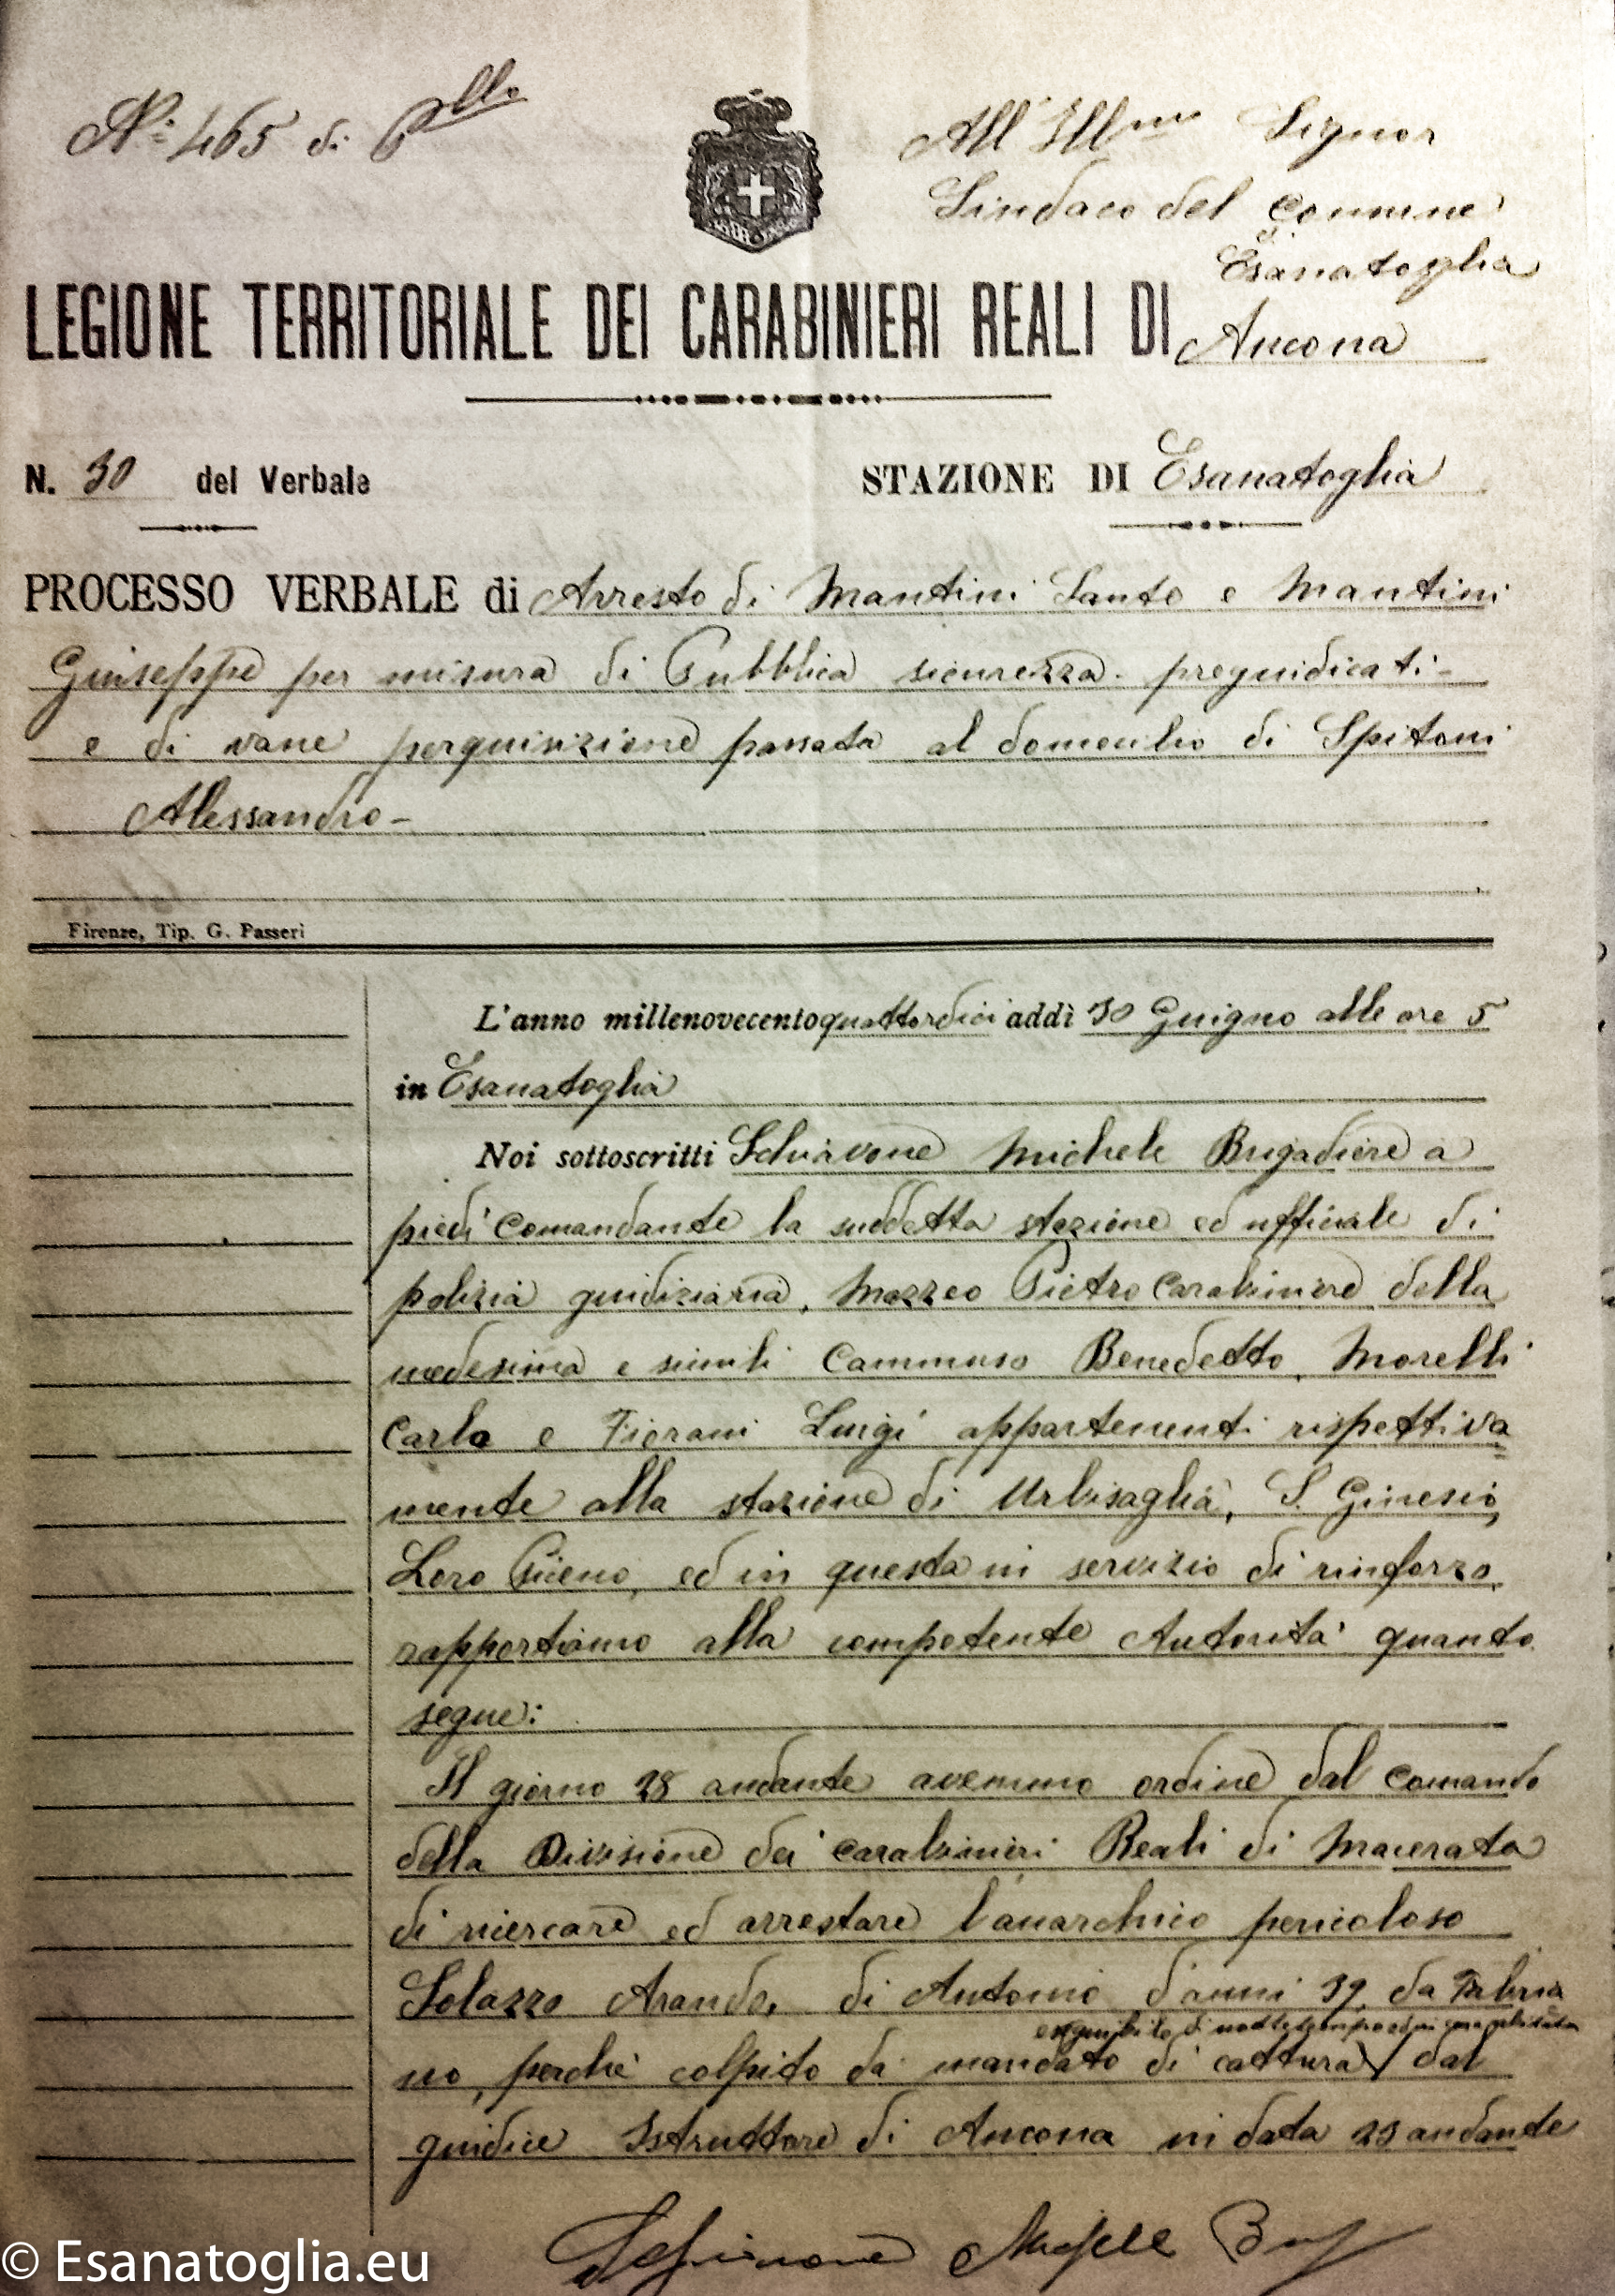 N.° 465 di P.llo
All'Ill.mo Signor
Sindaco del Comune
Esanatoglia
LEGIONE TERRITORIALE DEI CARABINIERI REALI DI Ancona
N. 30 del Verbale
STAZIONE DI Esanatoglia
PROCESSO VERBALE di Arresto di Mantini Santo e Mantini
Giuseppe per misura di Pubblica sicurezza. pregiudicati-
e di vane perquisizione passata al domicilio di Spitoni
Alessandro-
Firenze, Tip. G. Passeri
L'anno millenovecentoquattordici addì 30 Giugno alle ore 5
in Esanatoglia
Noi sottoscritti Schiavone Michele Brigadiere a
piedi comandante la suddetta stazione ed ufficiale di
polizia giudiziaria, Mazzeo Pietro Carabiniere della
medesima e simili Cammuso Benedetto, Morelli
Carlo e Fiorani Luigi appartenenti rispettiva=
mente alla stazione di Urbisaglia, S. Ginesio,
Loro Piceno, ed in questa in servizio di rinforzo,
rapportiamo alla competente Autorità quanto
segue:
Il giorno 28 andante avemmo ordine dal comando
della Divisione dei carabinieri Reali di Macerata
di ricercare ed arrestare l'anarchico pericoloso
Solazzo di Antonio d'anni 39, da Fabria
eseguibile di notte tempo
no, perchè colpito da mandato di cattura dal
giudice Istruttore di Ancona in data andante
Schiavone Michele Brig
© Esanatoglia.eu